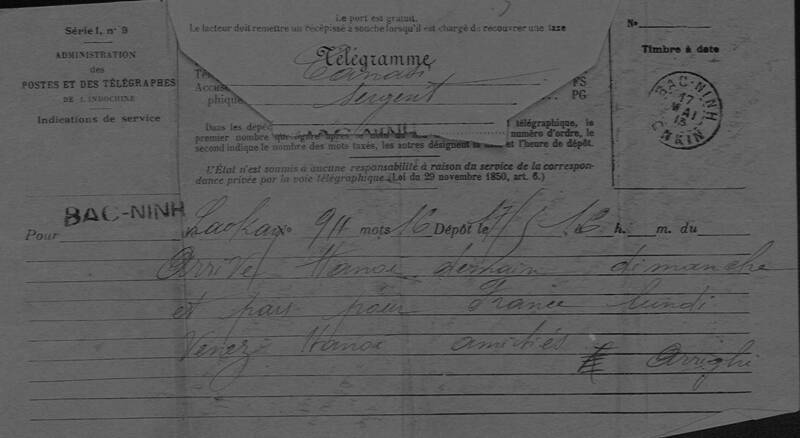 Série I, nº 9
ADMINISTRATION
des
POSTES ET DES TÉLÉGRAPHES
DE L'INDOCHINE
Indications de service
Le port est gratuit.
Le facteur doit remettre un récépissé à souche lorsqu'il est chargé de recouvrer une taxe
Télégramme
FS
phique
Sergent
PG
Dans les dépêc
télégraphique, le
premier nombre que
numéro d'ordre, le
second indique le nombre des mots taxés, les autres désignent la et l'heure de dépôt.
L'État n'est soumis à aucune responsabilité à raison du service de la correspon-
dance privée par la voie télégraphique (Loi du 29 novembre 1850, art. 6.)
Nº
Timbre à date
BAC-NINH
17
MAI
Pour BAC-NINH Laokay Nº 911 mots 16 Dépôt le 17/5 à 16 h. m. du
Arrive Hanoi demain dimanche
et pars pour France lundi
Venez Hanoi amitiés Arrighi